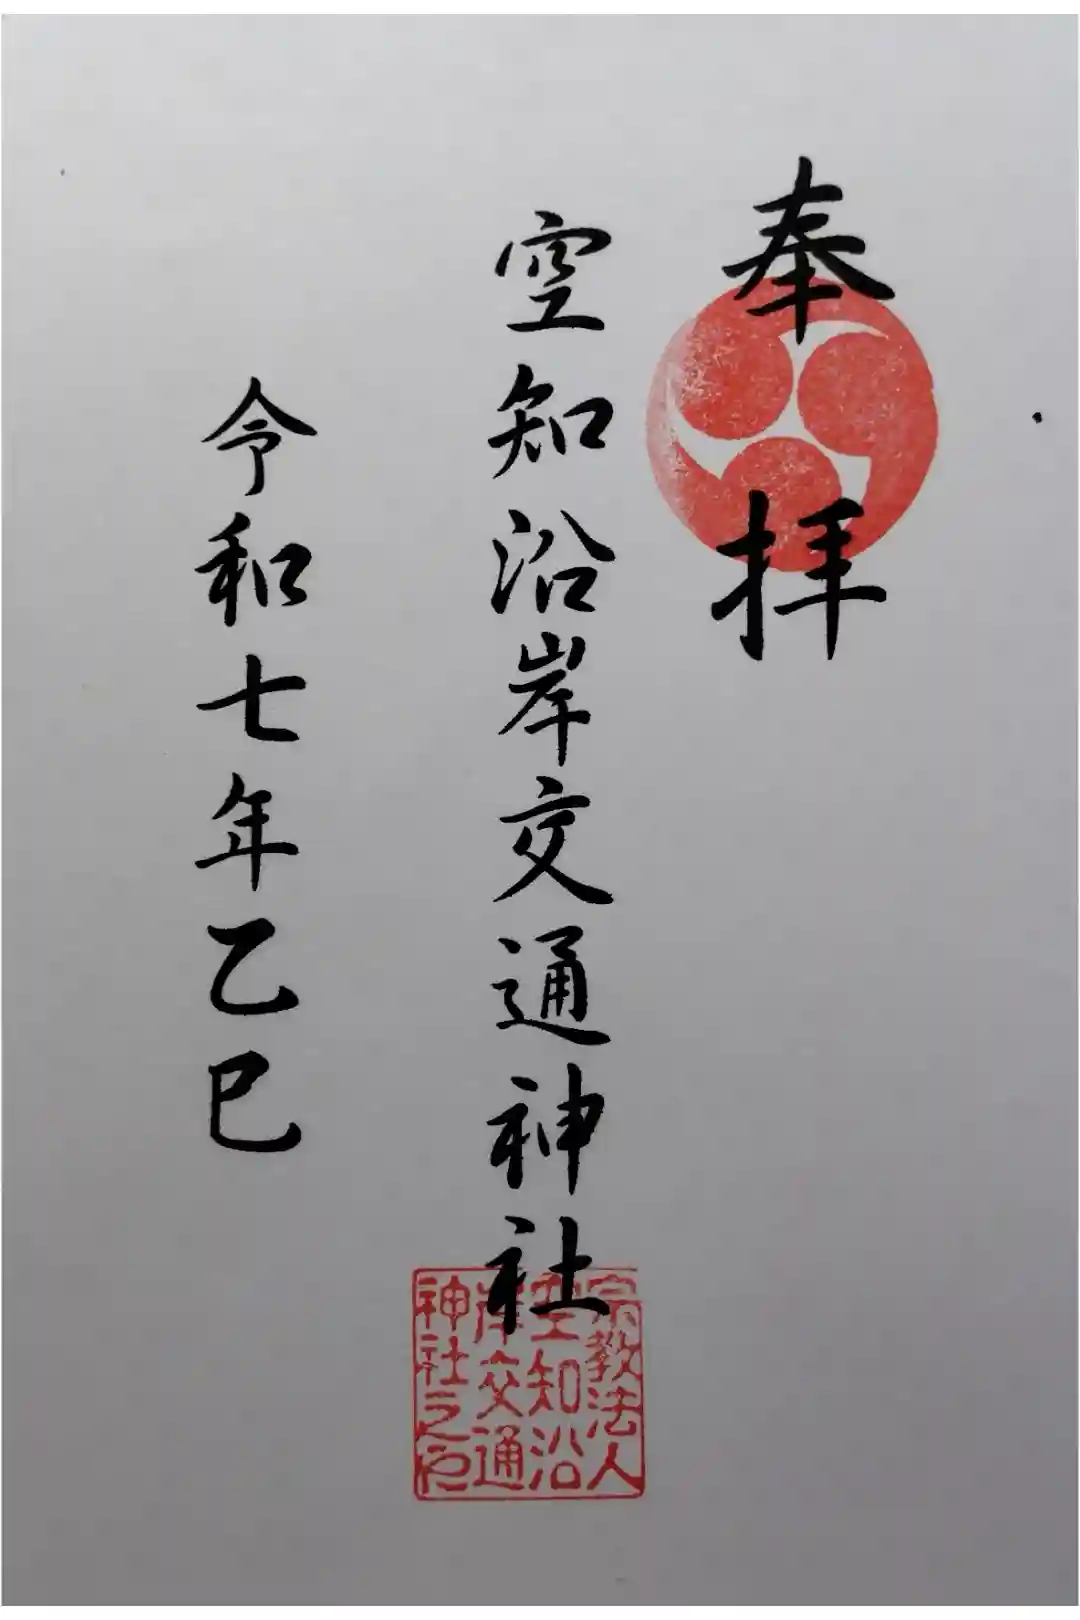 奉拝
空知沿岸交通神社
令和七年乙巳
宗教法人
空知沿
岸交通
神社之印